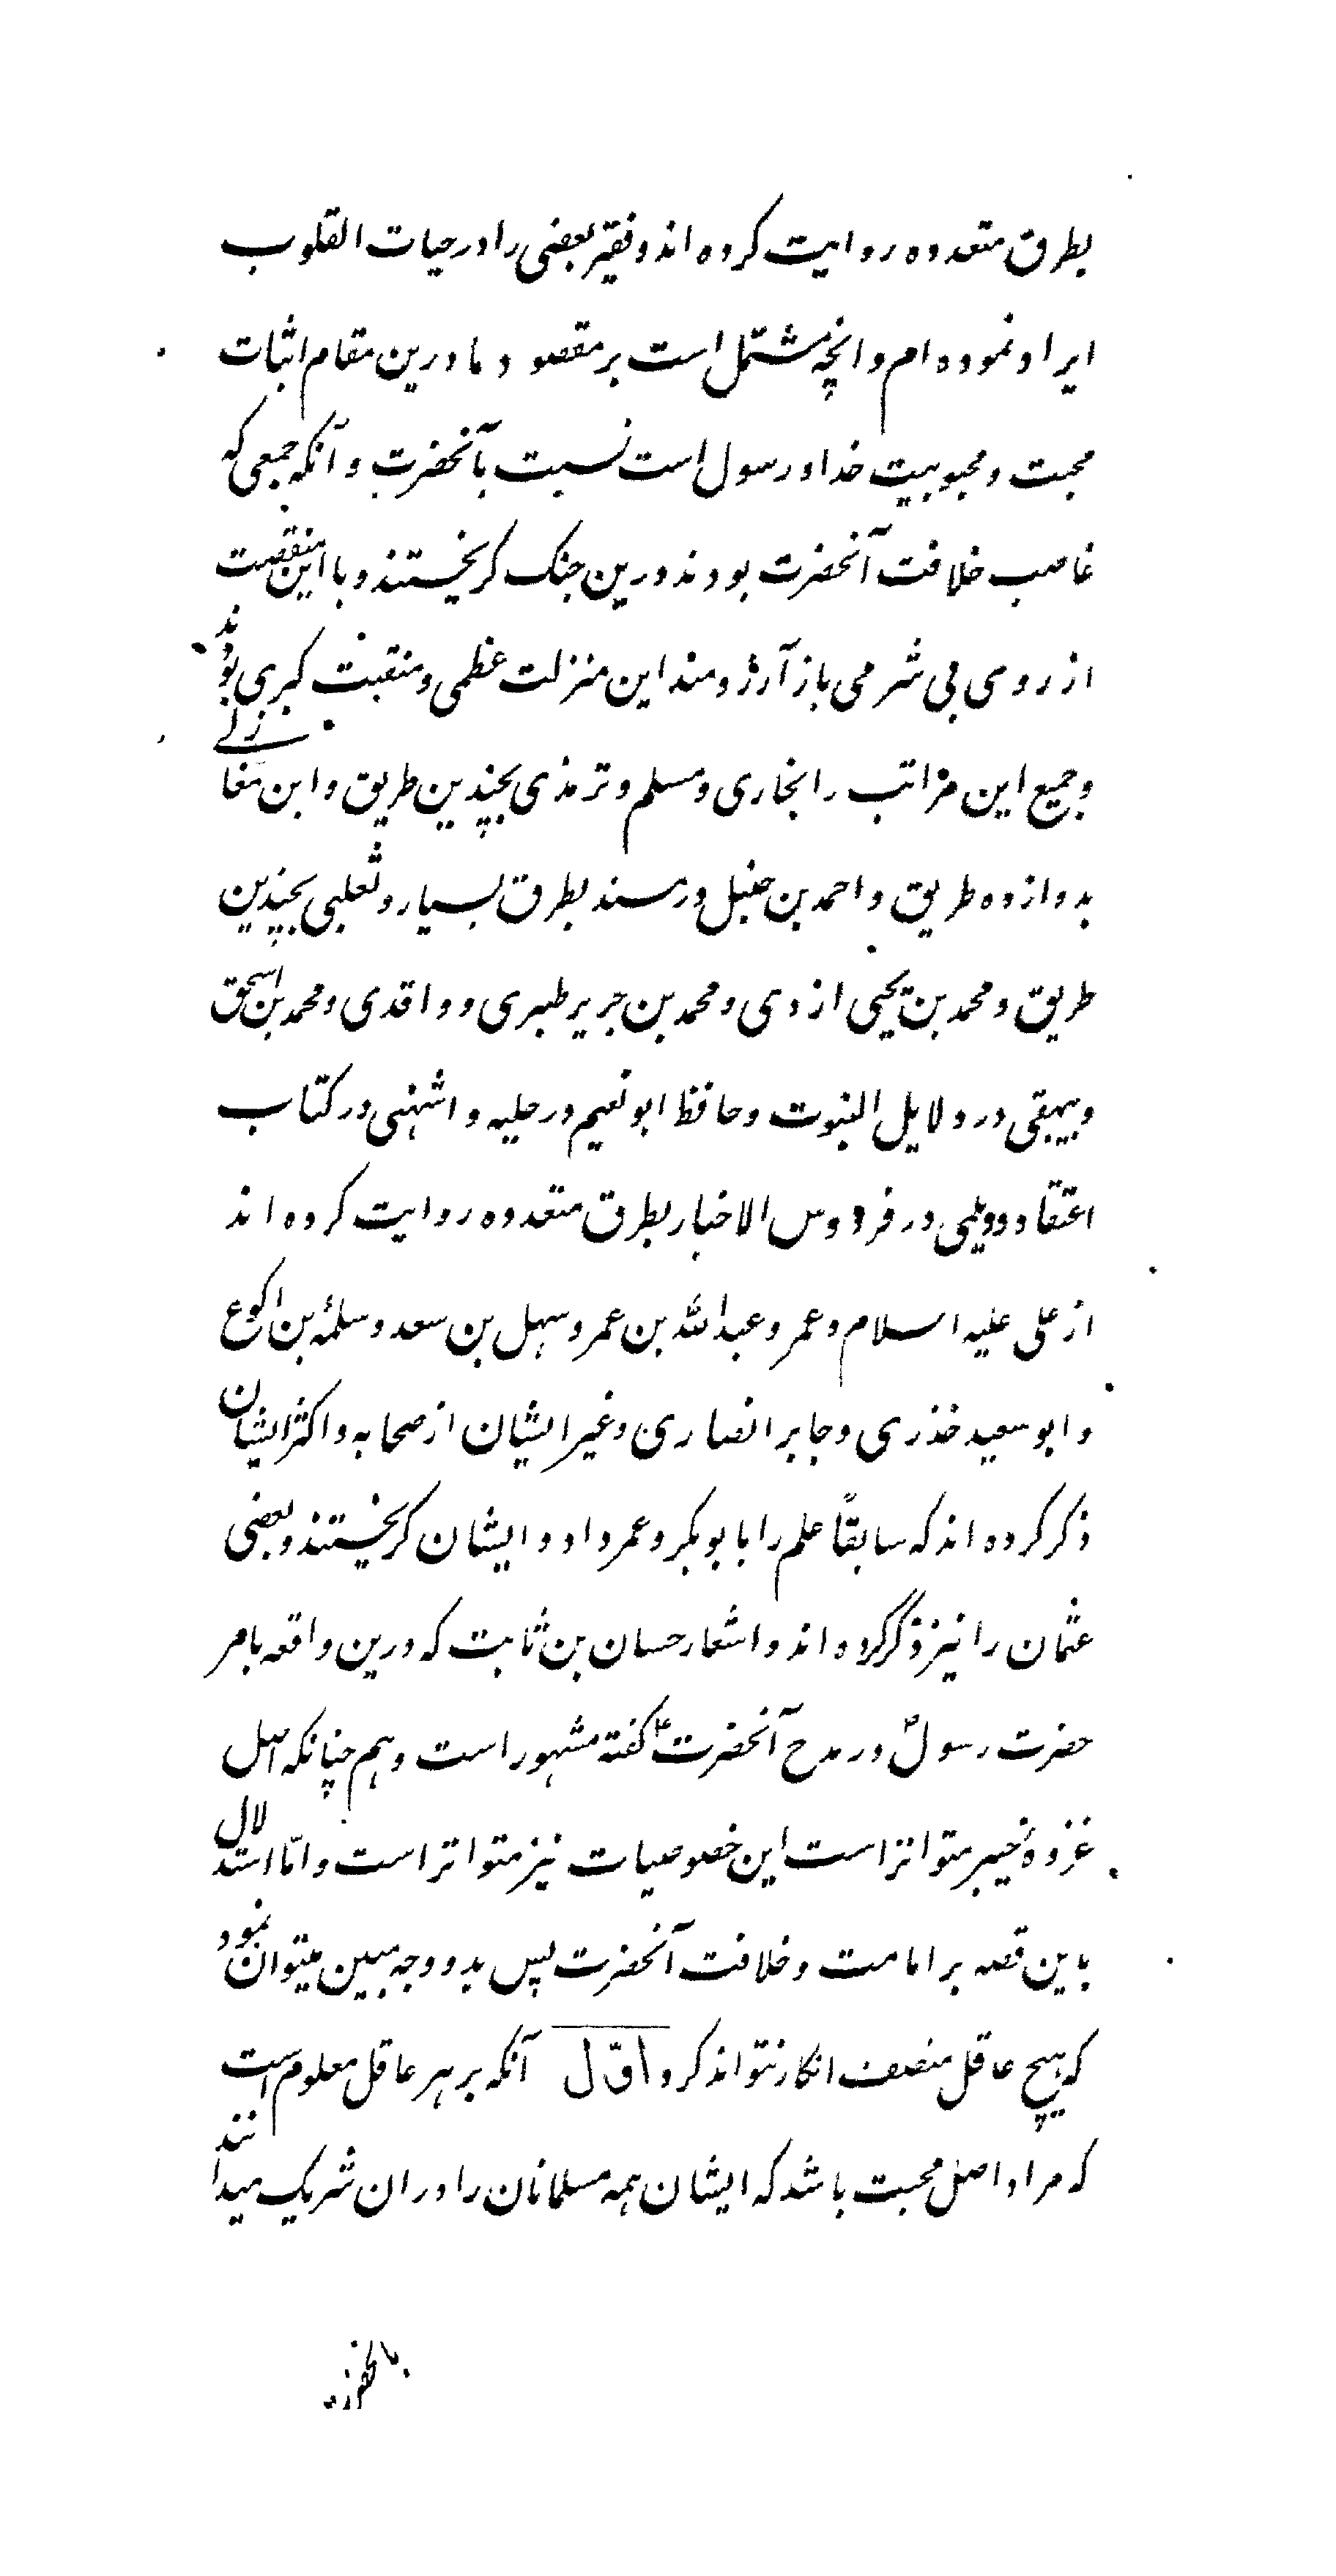 بطرق متعدده روایت کرده اند و فقیر بعضی را در حیات القلوب
ایراد نموده ام و انچه مشتمل است بر مقصود ما درین مقام اثبات
محبت و محبوبیت خدا و رسول است نسبت بآنحضرت و آنکه جمعی که
غاصب خلافت آنحضرت بودند درین جنک کریختند و با این منقصت
از روی بی شرمی باز آرزومند این منزلت عظمی و منقبت کبری بودند
و جمیع این مراتب را بخاری و مسلم و ترمذی بچندین طریق و ابن مغازلے
بدوازده طریق و احمد بن حنبل در مسند بطرق بسیار و ثعلبی بچندین
طریق و محمد بن یحیی ازدی و محمد بن جریر طبری و واقدی و محمد بن اسحق
و بیهقی در دلایل النبوت و حافظ ابو نعیم در حلیه و اشنهی در کتاب
اعتقاد و دیلمی در فردوس الاخبار بطرق متعدده روایت کرده اند
از علی علیه السلام و عمر و عبدالله بن عمر و سهل بن سعد و سلمه بن اکوع
و ابو سعید خذری و جابر انصاری و غیر ایشان از صحابه و اکثر ایشان
ذکر کرده اند که سابقاً علم را بابوبکر و عمر داد و ایشان کریختند و بعضی
عثمان را نیز ذکر کرده اند و اشعار حسان بن ثابت که درین واقعه بامر
حضرت رسولؐ در مدح آنحضرتؑ کفته مشهور است و هم چنانکه اصل
غزوهٔ خیبر متواتر است این خصوصیات نیز متواتر است و امّا استدلال
باین قصه بر امامت و خلافت آنحضرت پس بدو وجه مبین میتوان نمود
که هیچ عاقل منصف انکار نتواند کرد اوّل آنکه بر هر عاقل معلوم است
که مراد اصل محبت باشد که ایشان همه مسلمانان را در ان شریک میدانند